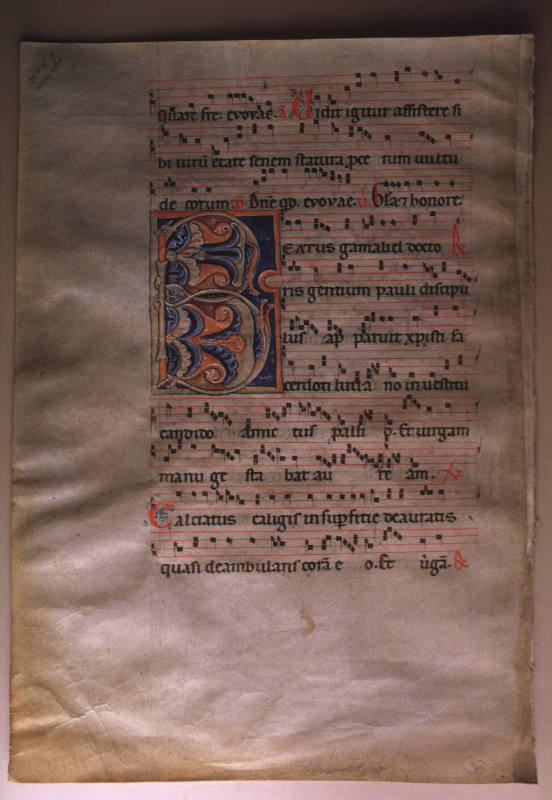 quare fre. evovae. a Vidit igitur assistere si
bi virū etate senem statura, pce rum vultu
de corum. p. Dn̄e qd. evovae. v. Glā ⁊ honore.
BEATUS gamaliel docto R
ris gentium pauli discipu
lus ap paruit xp̄isti sa
cerdoti lucia no in vestitu
candido amic tus palli o. Et virgam
manu ge sta bat au re am. V
Calciatus caligis in sup̄fitie deauratis
quasi deambulans corā e o. Et v̄gā. R